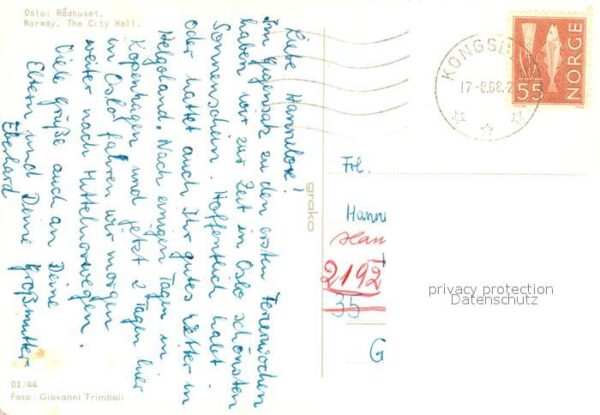 Oslo: Rådhuset.
Norway. The City Hall.
Liebe Hannelore!
Im Gegensatz zu den ersten Ferienwochen
haben wir zur Zeit in Oslo schönsten
Sonnenschein. Hoffentlich habt
oder hattet auch Ihr gutes Wetter in
Helgoland. Nach einigen Tagen in
Kopenhagen und jetzt 2 Tagen hier
in Oslo fahren wir morgen
weiter nach Mittelnorwegen.
Viele Grüße auch an Deine
Eltern und Deine Großmutter
Eberhard
01/44
Foto: Giovanni Trimboli
grako
KONGSB
17-8.68.2
55
NORGE
Frl.
Hanne
Ham
2192
35
G
privacy protection
Datenschutz